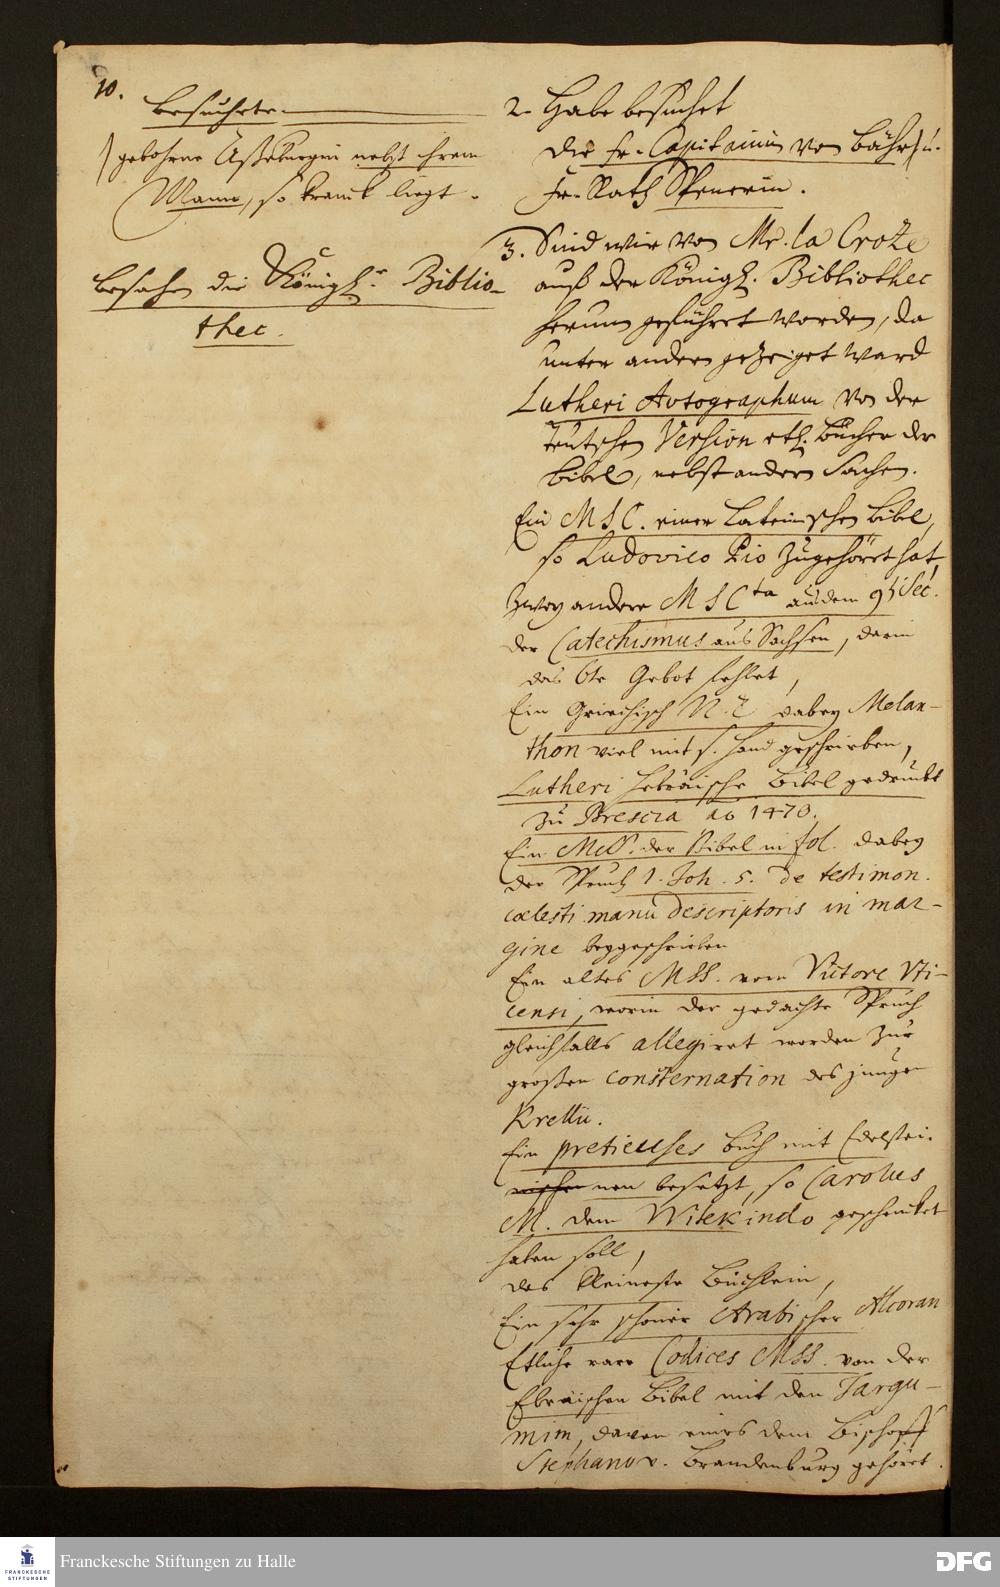 10.
besuchete.
) gebohrne Aßeburgin nebst ihrem
Mann, so kranck liegt.
besahe die Königl. Biblio-
thec.
2. Habe besuchet
die Fr. Capitainin von Bähr) u.
Fr. Rath Spenerin.
3. Sind wir von Mr. la Croze
auß der Königl. Bibliothec
herum geführet worden, da
unter andern gezeiget ward
Lutheri Avtographum von der
teutschen Version etl. Bücher der
Bibel, nebst andern Sachen.
Ein MSC. einer Lateinischen Bibel,
so Ludovico Pio zugehöret hat,
Zwey andere MSCta aus dem 9t Sec.
der Catechismus aus Sachsen, darin
das 6te Gebot fehlet,
Ein Griechisch N. T. dabey Melan-
thon viel mit s. Hand geschrieben,
Lutheri Hebräische Bibel gedruckt
zu Brescia ao 1470.
Ein MSS. der Bibel in fol. dabey
der Spruch 1. Joh. 5. de testimon.
cœlesti manu descriptoris in mar-
gine beygeschrieben
Ein altes MSS. vom Victore Vti-
censi, worin der gedachte Spruch
gleichfalls allegiret worden zur
großen consternation des jungen
Krellii.
Ein pretieuses Buch mit Edelstei-
nen besetzt, so Carolus
M. dem Witekindo geschencket
haben soll,
das kleineste Büchlein,
Ein sehr schöner Arabischer Alcoran
Etliche rare Codices MSS. von der
Ebräischen Bibel mit den Targu-
mim, davon eines dem Bischoff
Stephano v. Brandenburg gehöret.
FRANCKESCHE STIFTUNGEN
Franckesche Stiftungen zu Halle
DFG